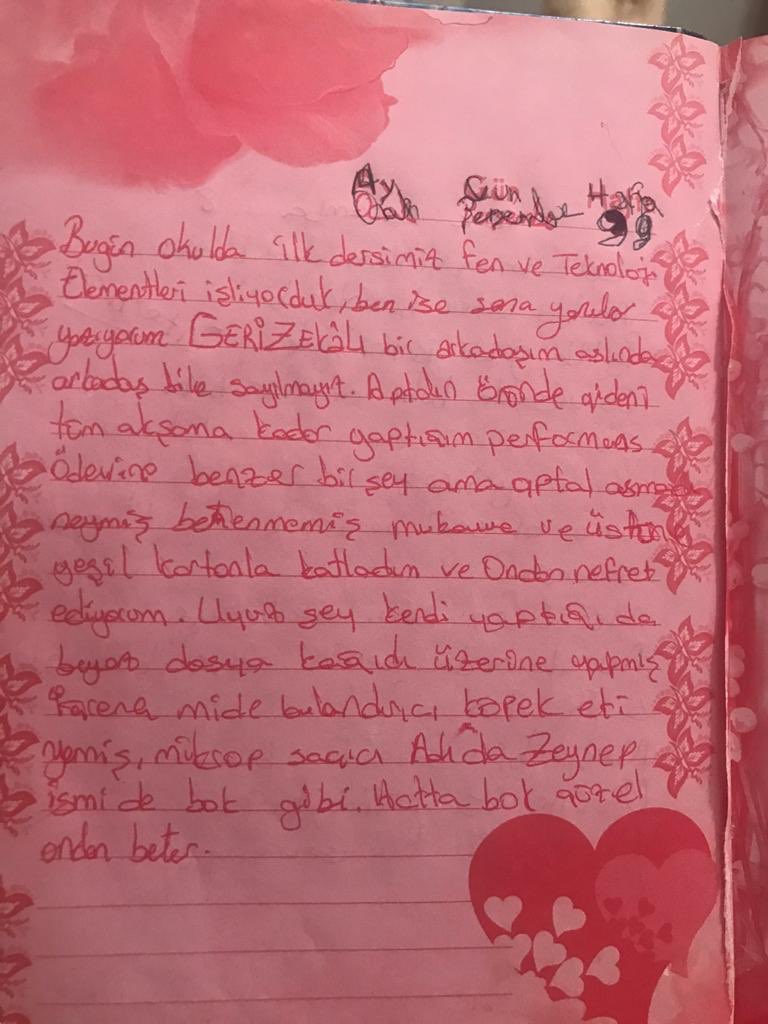 Ay Gün Hafta
Ocak Perşembe 99
Bugün okulda ilk dersimiz fen ve Teknoloji
Elementleri işliyorduk, ben ise sana
yazıyorum. GERİZEKÂLI bir arkadaşım aslında
arkadaş bile sayılmayız. Aptalın önde gideni
tüm akşama kadar yaptığım performans
Ödevine benzer bir şey ama aptal
neymiş beğenmemiş mukavva ve üstünü
yeşil kartonla katladım ve Ondan nefret
ediyorum. Uyuz şey kendi yaptığı da
beyaz dosya kağıdı üzerine yapmış
mide bulandırıcı köpek eti
yemiş, mikrop saçıcı Adı da Zeynep
ismi de bok gibi. Hatta bok güzel
ondan beter.